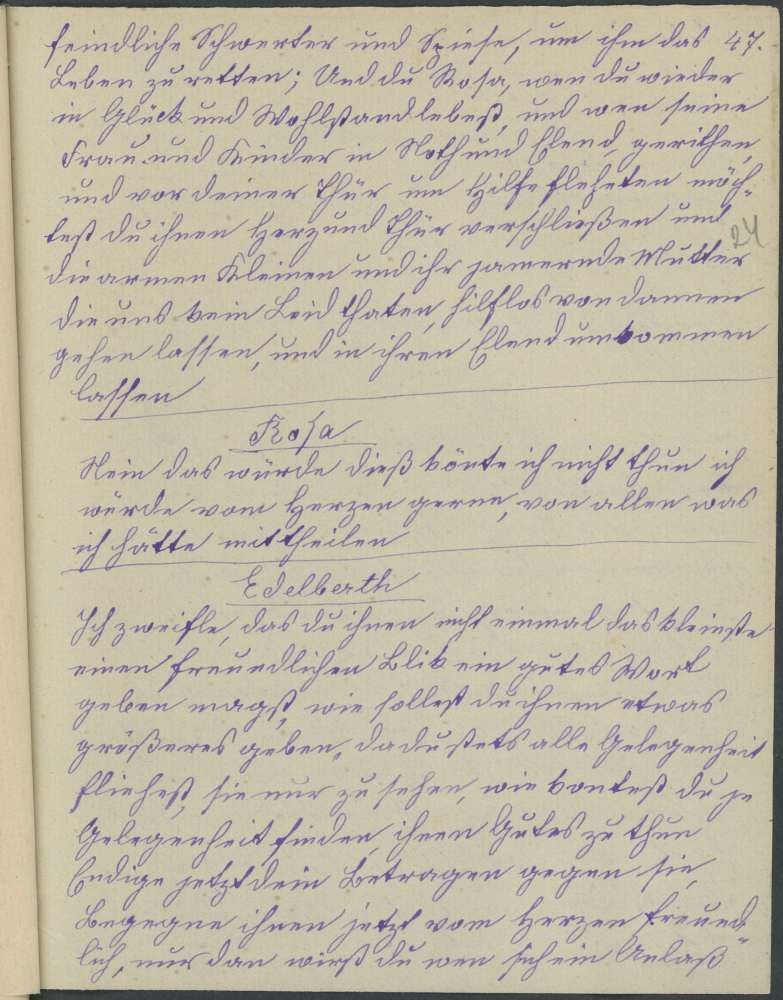 feindliche Schwerter und Spiese, um ihm das 47.
Leben zu retten; Und du Rosa, wen du wieder
in Glück und Wohlstand lebest, und wen seine
Frau und Kinder in Noth und Elend, gerithen,
und vor deiner Thür um Hilfe fleheten möch-
test du ihnen Herz und Thür verschließen und
24
die armen Kleinen und ihr jamernde Mutter
die uns kein Leid thaten, hilflos von dannen
gehen lassen, und in ihren Elend umkommen
lassen
Rosa
Nein das würde dieß könte ich nicht thun ich
würde vom Herzen gerne, von allen was
ich hätte mittheilen
Edelberth
Ich zweifle, das du ihnen nicht einmal das kleinste
einen freundlichen Blik ein gutes Wort
geben magst, wie sollest du ihnen etwas
größeres geben, da du stets alle Gelegenheit
fliehest, sie nur zu sehen, wie kontest du je
Gelegenheit finden, ihnen Gutes zu thun
Endige jetzt dein Betragen gegen sie,
Begegne ihnen jetzt vom Herzen freund-
lich, nur dan wirst du wen sich ein Anlaß